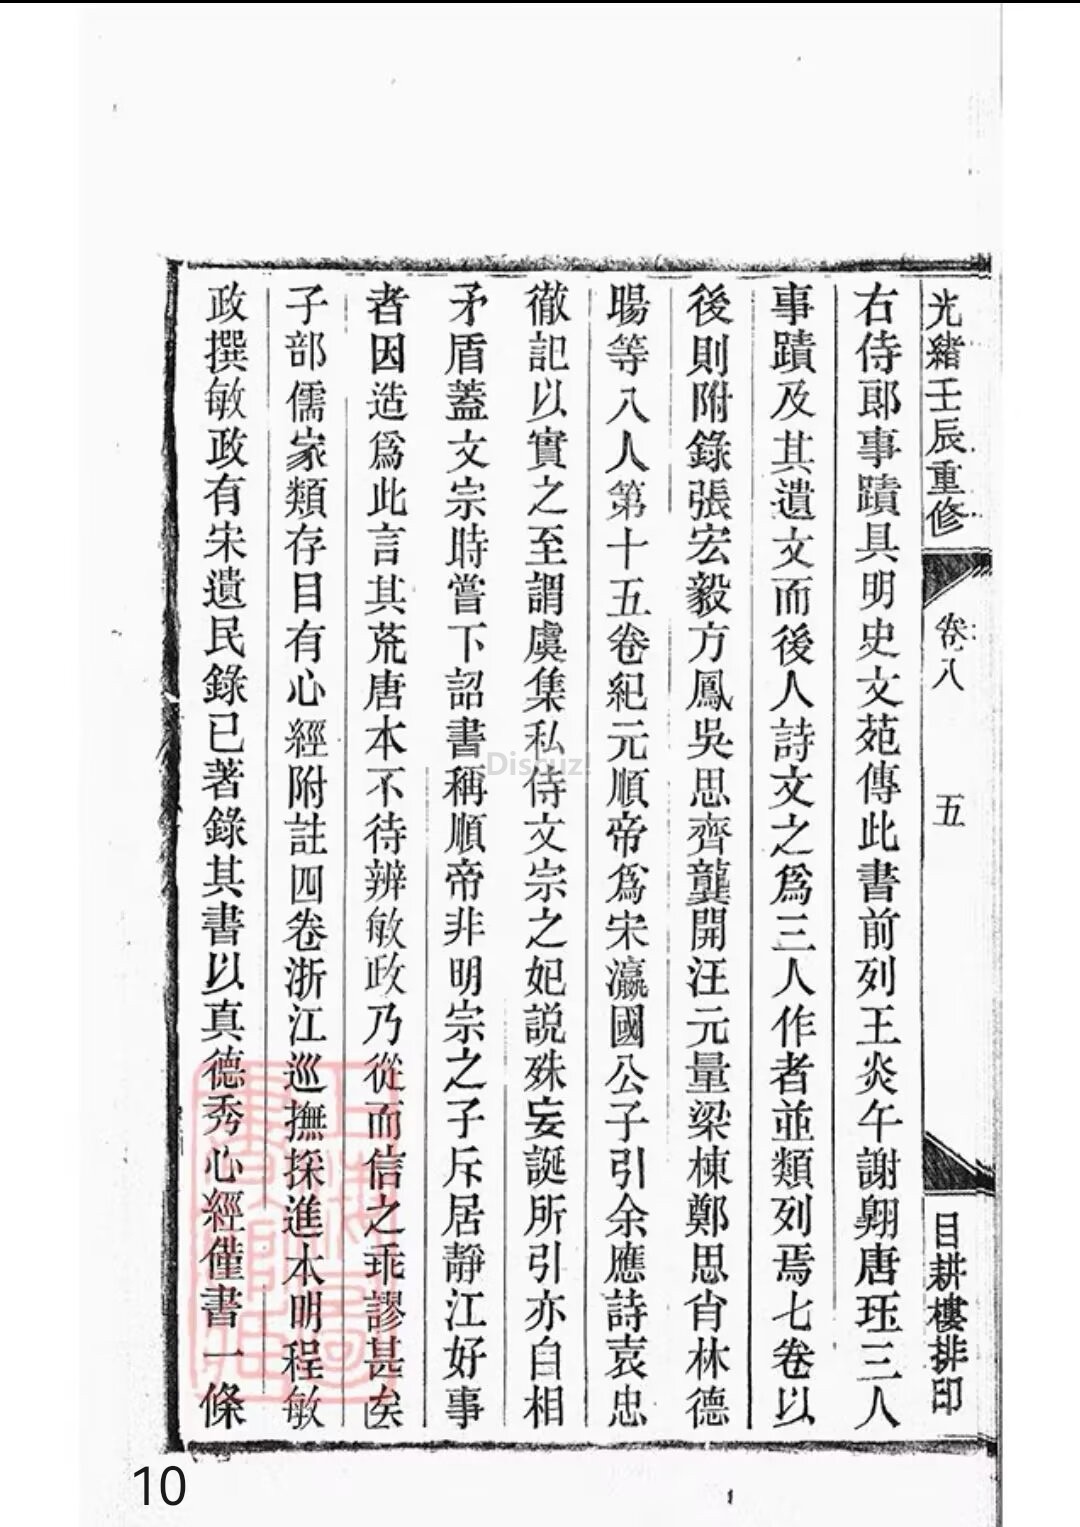 光緒壬辰重修
卷八
五
目耕樓排印
右侍郎事蹟具明史文苑傳此書前列王炎午謝翺唐珏三人
事蹟及其遺文而後人詩文之爲三人作者並類列焉七卷以
後則附錄張宏毅方鳳吳思齊龔開汪元量梁棟鄭思肖林德
暘等八人第十五卷紀元順帝爲宋瀛國公子引余應詩袁忠
徹記以實之至謂虞集私侍文宗之妃説殊妄誕所引亦自相
矛盾蓋文宗時嘗下詔書稱順帝非明宗之子斥居靜江好事
者因造爲此言其荒唐本不待辨敏政乃從而信之乖謬甚矣
子部儒家類存目有心經附註四卷浙江巡撫採進本明程敏
政撰敏政有宋遺民錄已著錄其書以真德秀心經僅書一條
Discuz!
10